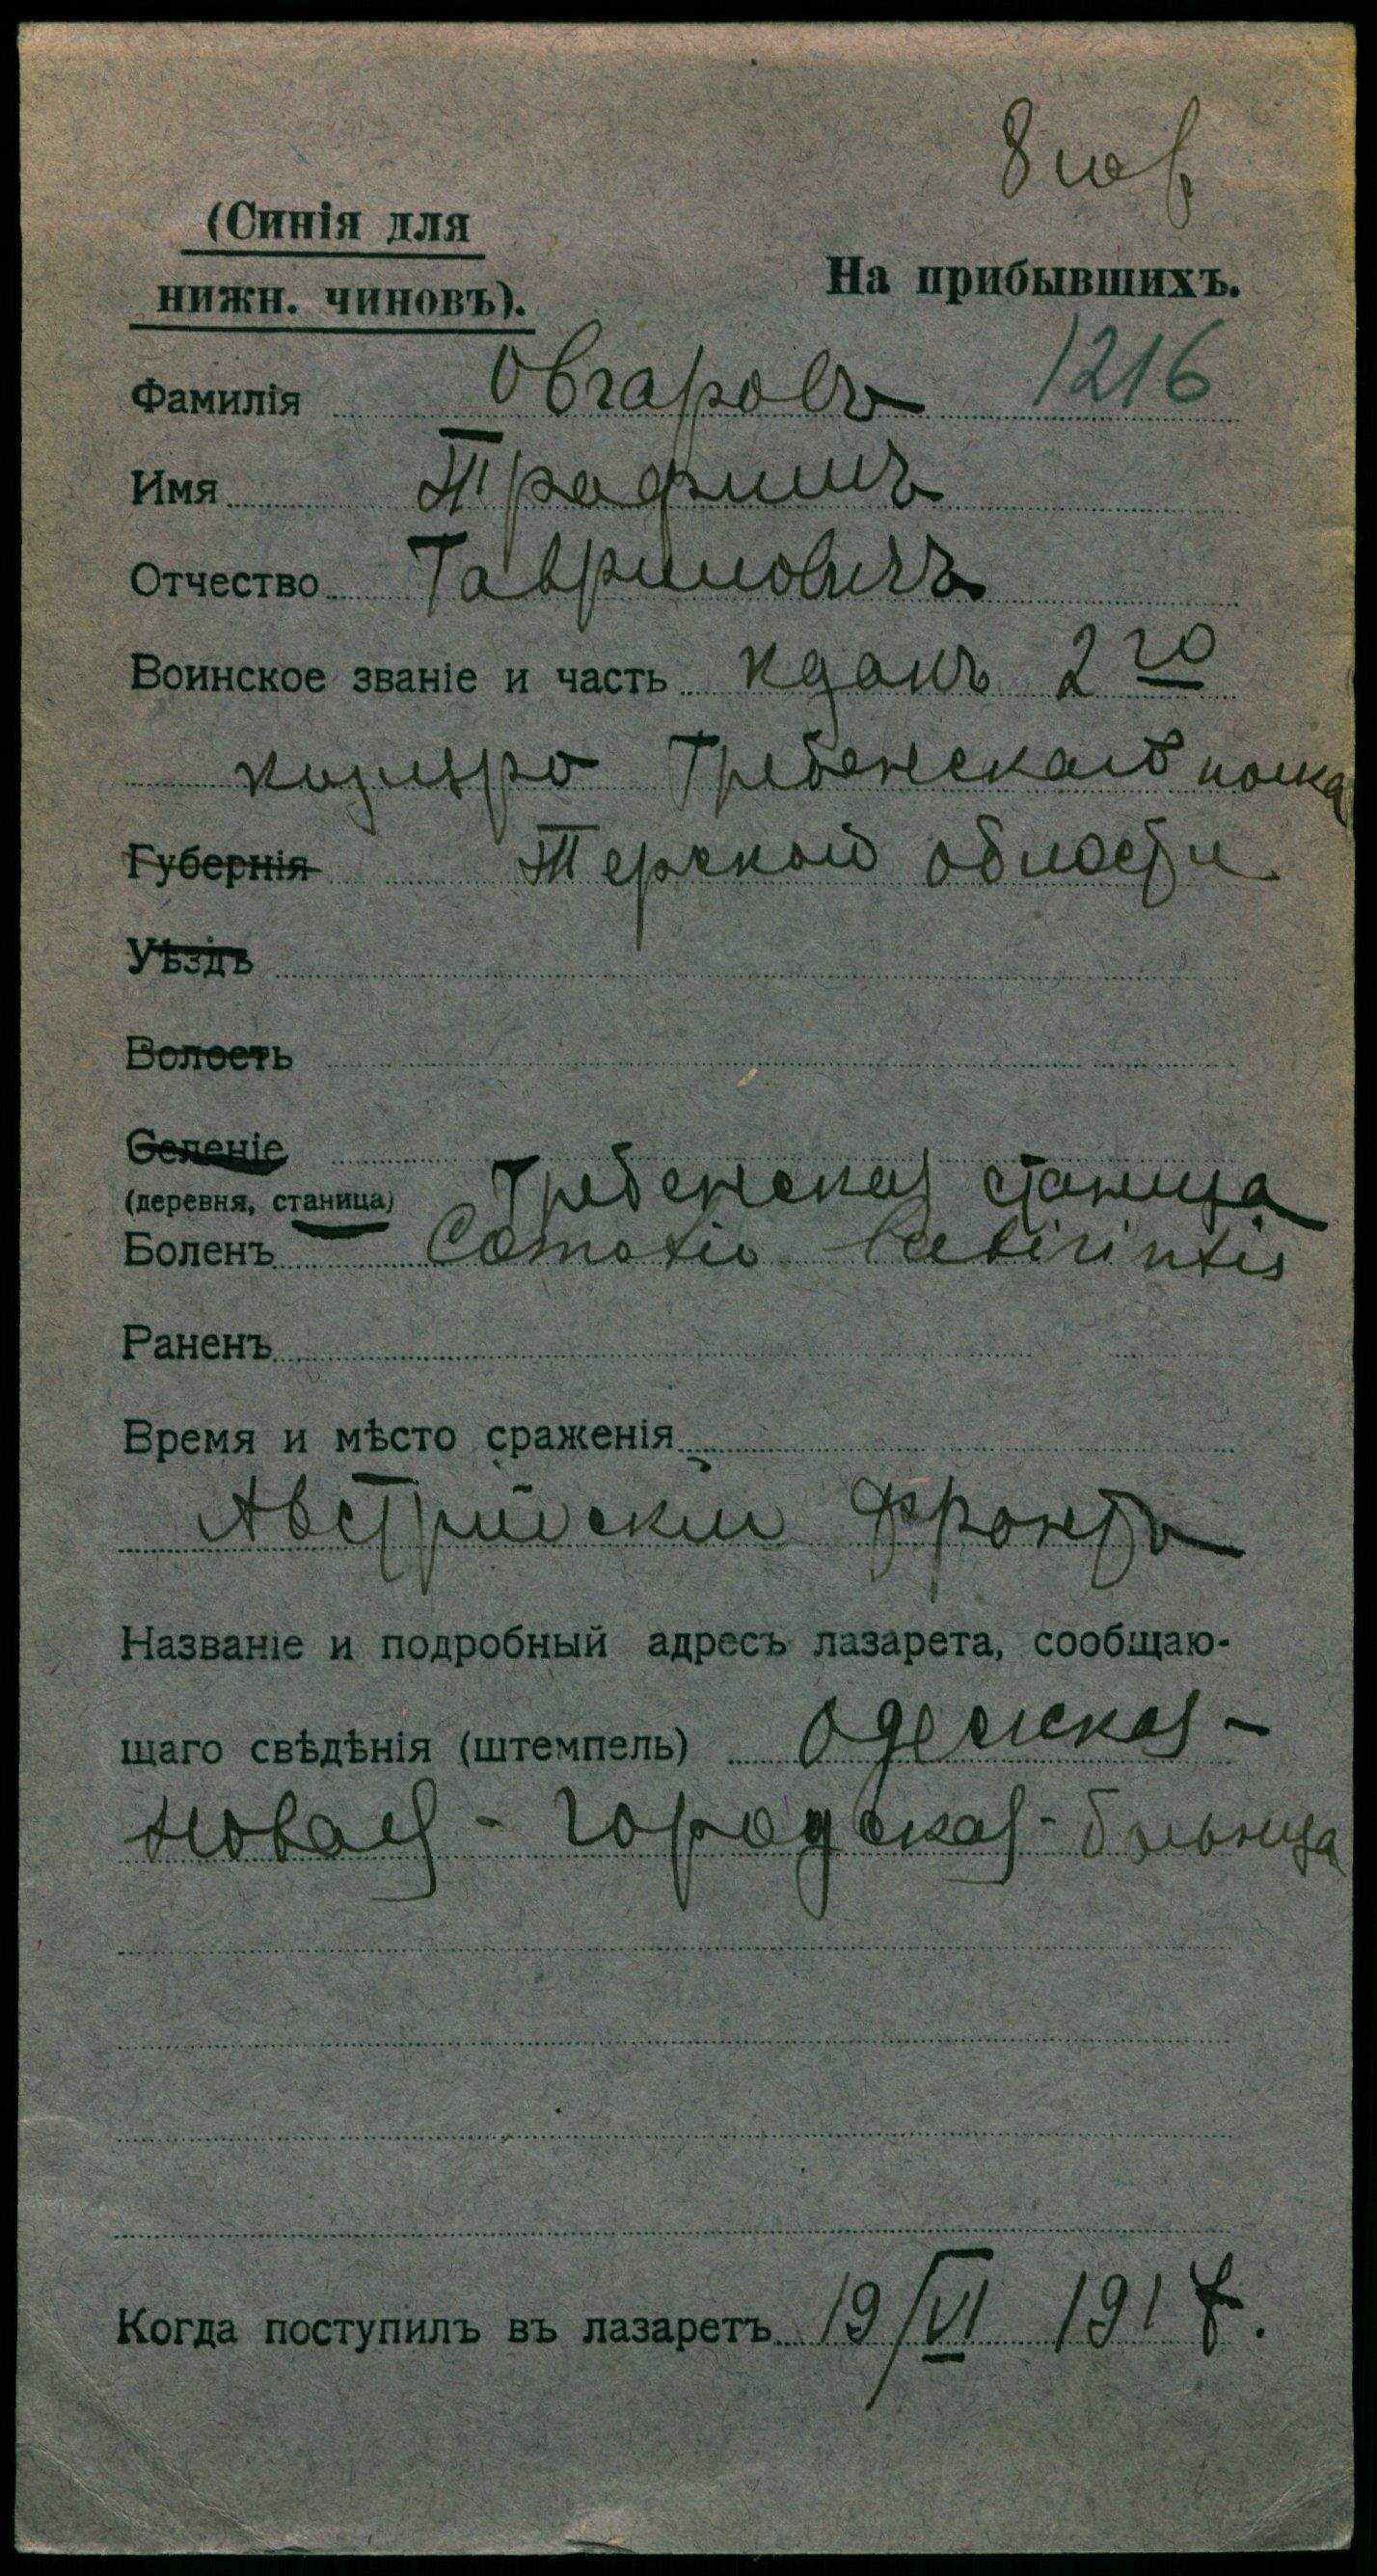 8 нов
(Синія для
нижн. чиновъ).
На прибывшихъ.
Фамилія Овчаровъ 1216
Имя Трафимъ
Отчество Гавриловичъ
Воинское званіе и часть 2го
Гребенскаго полка
Губернія Терской области
Уѣздъ
Волость
Селеніе
(деревня, станица) Гребенская станица
Боленъ
Раненъ
Время и мѣсто сраженія
Австрійскій фронтъ
Названіе и подробный адресъ лазарета, сообщаю-
щаго свѣдѣнія (штемпель) Одесская -
Новая - городская - больница
Когда поступилъ въ лазаретъ 19/VI 1917.